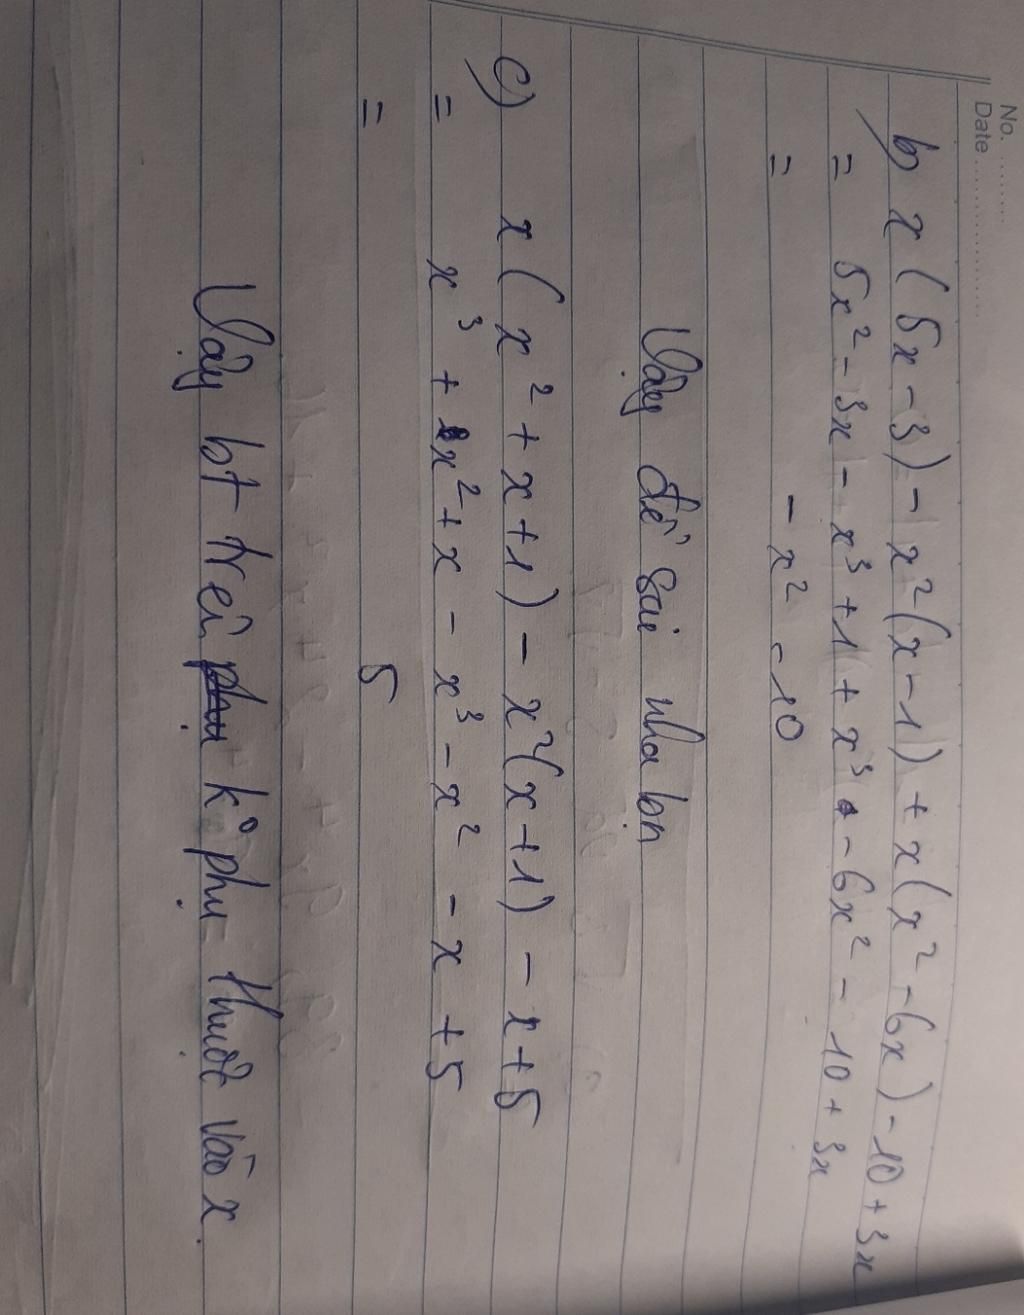 No. ........
Date ....................
b) x(5x-3) - x²(x-1) + x(x²-6x) - 10 + 3x
= 5x² - 3x - x³ + 1 + x³ - 6x² - 10 + 3x
= - x² - 10
Vậy đề sai nha bn
c) x(x² + x + 1) - x²(x+1) - x + 5
= x³ + x² + x - x³ - x² - x + 5
= 5
Vậy bt trên k° phụ thuộc vào x.